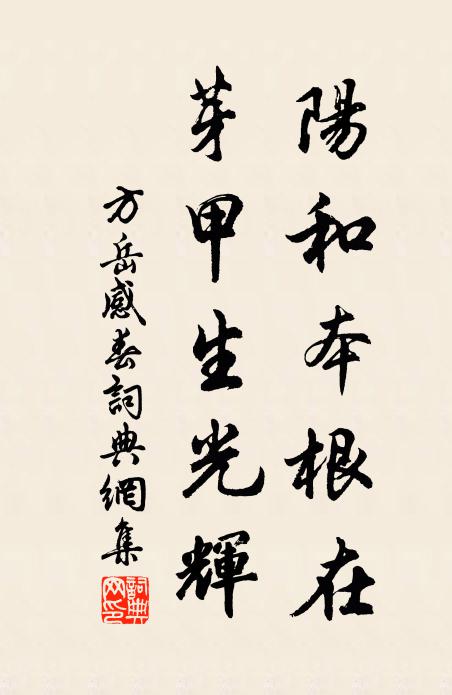 陽和本根在
芽甲生光輝
方岳感春詞典網集
詞典網印